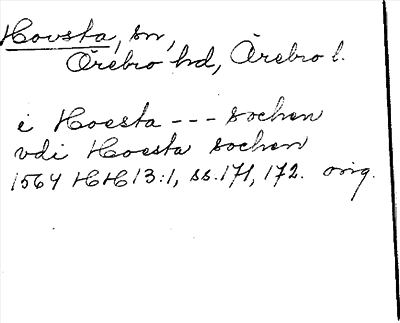 Hovsta, sn,
Örebro hd, Örebro l.
i Hoesta --- sochen
vdi Hoesta sochen
1564 HH 13:1, ss. 171, 172. orig.